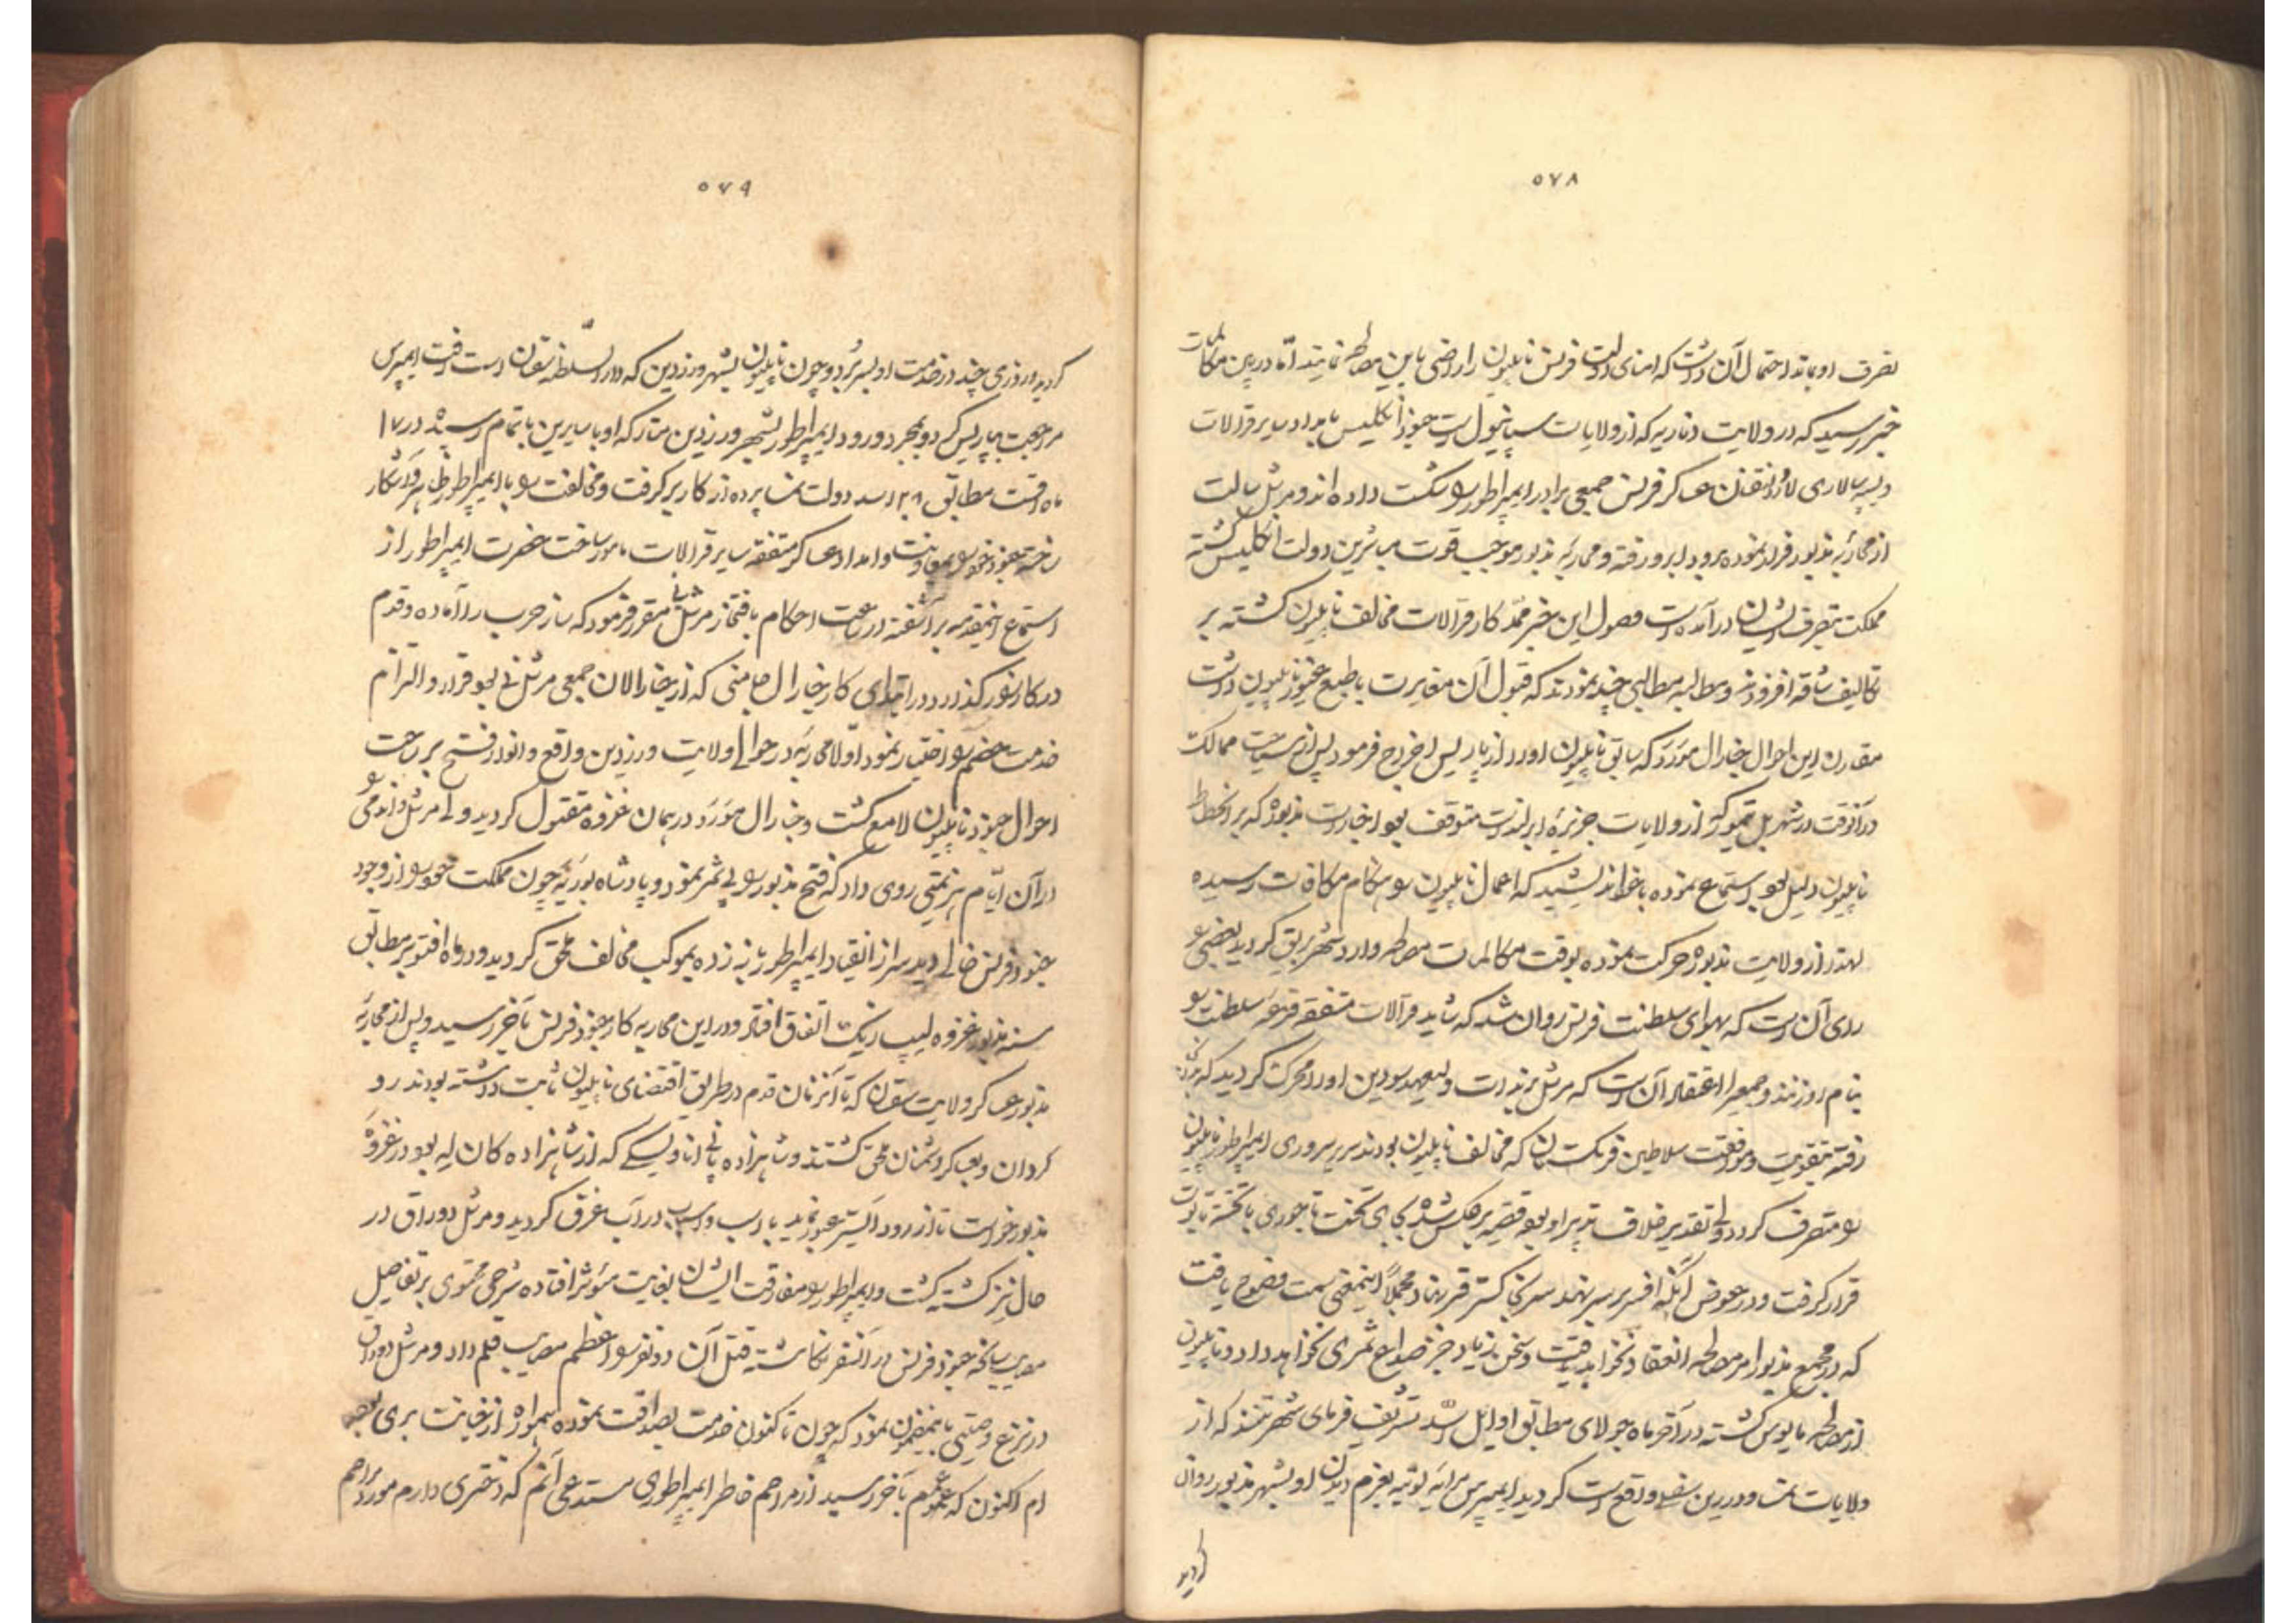 ۵۷۸
تصرف او بماند احتمال آن داشت که امنای دولت فرنس ناپلیون را راضی باین مصالحه نمایند اما در بین مکالمات
خبر رسید که در ولایت که از ولایات سپانیول است جنود انگلیس بامداد سایر قرالات
و سپه سالاری عساکر فرنس جمعی برادر ایمپراطور را شکست داده اند و مرشل سالت
از محاربه مذبور فرار نموده و محاربه مذبور موجب قوت مباشرین دولت انگلیس گشته
مملکت بتصرف ایشان درآمده است وصول این خبر ممد کار قرالات مخالف ناپلیون گشته بر
تکالیف شاقه افزودند و مطالبه مطالبی چند نمودند که قبول آن مغایرت با طبع غیور ناپلیون داشت
مقارن این احوال جنارال مورو که سابق ناپلیون او را از پاریس اخراج فرمود پس از سیاحت ممالک
در آنوقت در شهر از ولایات جزیره متوقف بود اخبارات مذبوره که بر انحطاط
ناپلیون دلیل بود استماع نموده با خود اندیشید که اعمال ناپلیون را هنگام مکافات رسیده
لهذا از ولایت مذبوره حرکت نموده بوقت مکالمات مصالحه وارد شهر گردید بعضی را
رای آن است که بهوای سلطنت فرنس روان شد که شاید قرالات متفقه قرعه سلطنت را
بنام او زنند و جمعی را اعتقاد آن است که مرشل برنادات ولیعهد سودین او را محرک گردید که
رفته بتقویت و موافقت سلاطین فرنگستان که مخالف ناپلیون بودند سریر سروری ایمپراطور ناپلیون
را متصرف گردد ولی تقدیر خلاف تدبیر او بود قضیه برعکس شده بجای تخت تاجوری با تخته تابوت
قرار گرفت و در عوض آنکه افسر بر سر نهد سر بخاکستر قبر نهاد مجملاً اینمعنی سمت وضوح یافت
که در مجمع مذبور امر مصالحه انعقاد نخواهد یافت و سخن زیاد جز صداع ثمری نخواهد داد و ناپلیون
از مصالحه مایوس گشته در آخر ماه جولای مطابق اوایل اسد تشریف فرمای شهر که از
ولایات نمسا و در رین سفلی واقع است گردید ایمپرس ماریه لوئیه بعزم دیدن او بشهر مذبور روان
گردید
۵۷۹
گردید و روزی چند در خدمت او بسر برد و چون ناپلیون بشهر درزدین که دار السلطنه سقون است رفت ایمپرس
مراجعت بپاریس کرد و بمجرد ورود ایمپراطور بشهر درزدین متارکه او با سایرین باتمام رسید در ۱۷
ماه اقست مطابق ۲۸ اسد دولت نمسا پرده از کار برگرفت و مخالفت را با ایمپراطور ظاهر و آشکار
ساخته جنود خود را بمعاونت و امداد عساکر متفقه سایر قرالات مامور ساخت حضرت ایمپراطور از
استماع اینمقدمه برآشفته در ساعت احکام بافتخار مرشل نی مقرر فرمود که ساز حرب را آماده و قدم
در کارزار گذارد در ابتدای کار جنارال جامنی که از جنارالان جمعی مرشل نی بود فرار و التزام
خدمت خصم را اختیار نمود اولا محاربه در حوالی ولایت درزدین واقع و انوار فتح بر ساحت
احوال جنود ناپلیون لامع گشت و جنارال مورو در همان غزوه مقتول گردید ولی مرشل واندمی را
در آن ایام هزیمتی روی داد که فتح مذبور را بی ثمر نمود و پادشاه بوریه چون مملکت خود را از وجود
جنود فرنس خالی دید سر از انقیاد ایمپراطور باز زده بموکب مخالف ملحق گردید و در ماه اقتوبر مطابق
سنه مذبور غزوه لیپسزیک اتفاق افتاد و در این محاربه کار جنود فرنس بآخر رسید و پس از محاربه
مذبور عساکر ولایت سقون که تا آنزمان قدم در طریق اقتضای ناپلیون ثابت داشته بودند رو
گردان و بعساکر دشمنان ملحق گشتند و شاهزاده پانی اتاوسکی که از شاهزاده کان له بود در غزوه
مذبور خواست تا از رود الستر عبور نماید با اسب و اسباب در آب غرق گردید و مرشل دوراق در
حال نیز کشته گشت و ایمپراطور را مفارقت ایشان بغایت موثر افتاده شرحی محتوی بر تفاصیل
مصایب سانحه جنود فرنس در آنسفر نگاشته قتل آن دو نفر را اعظم مصایب قلم داد و مرشل دوراق
در نزع وصیتی باینمضمون نمود که چون تا کنون خدمت بصداقت نموده همواره از خیانت بری بوده
ام اکنون که عمرم بآخر رسید از مراحم خاطر ایمپراطوری مستدعی آنم که دختری دارم مورد مراحم